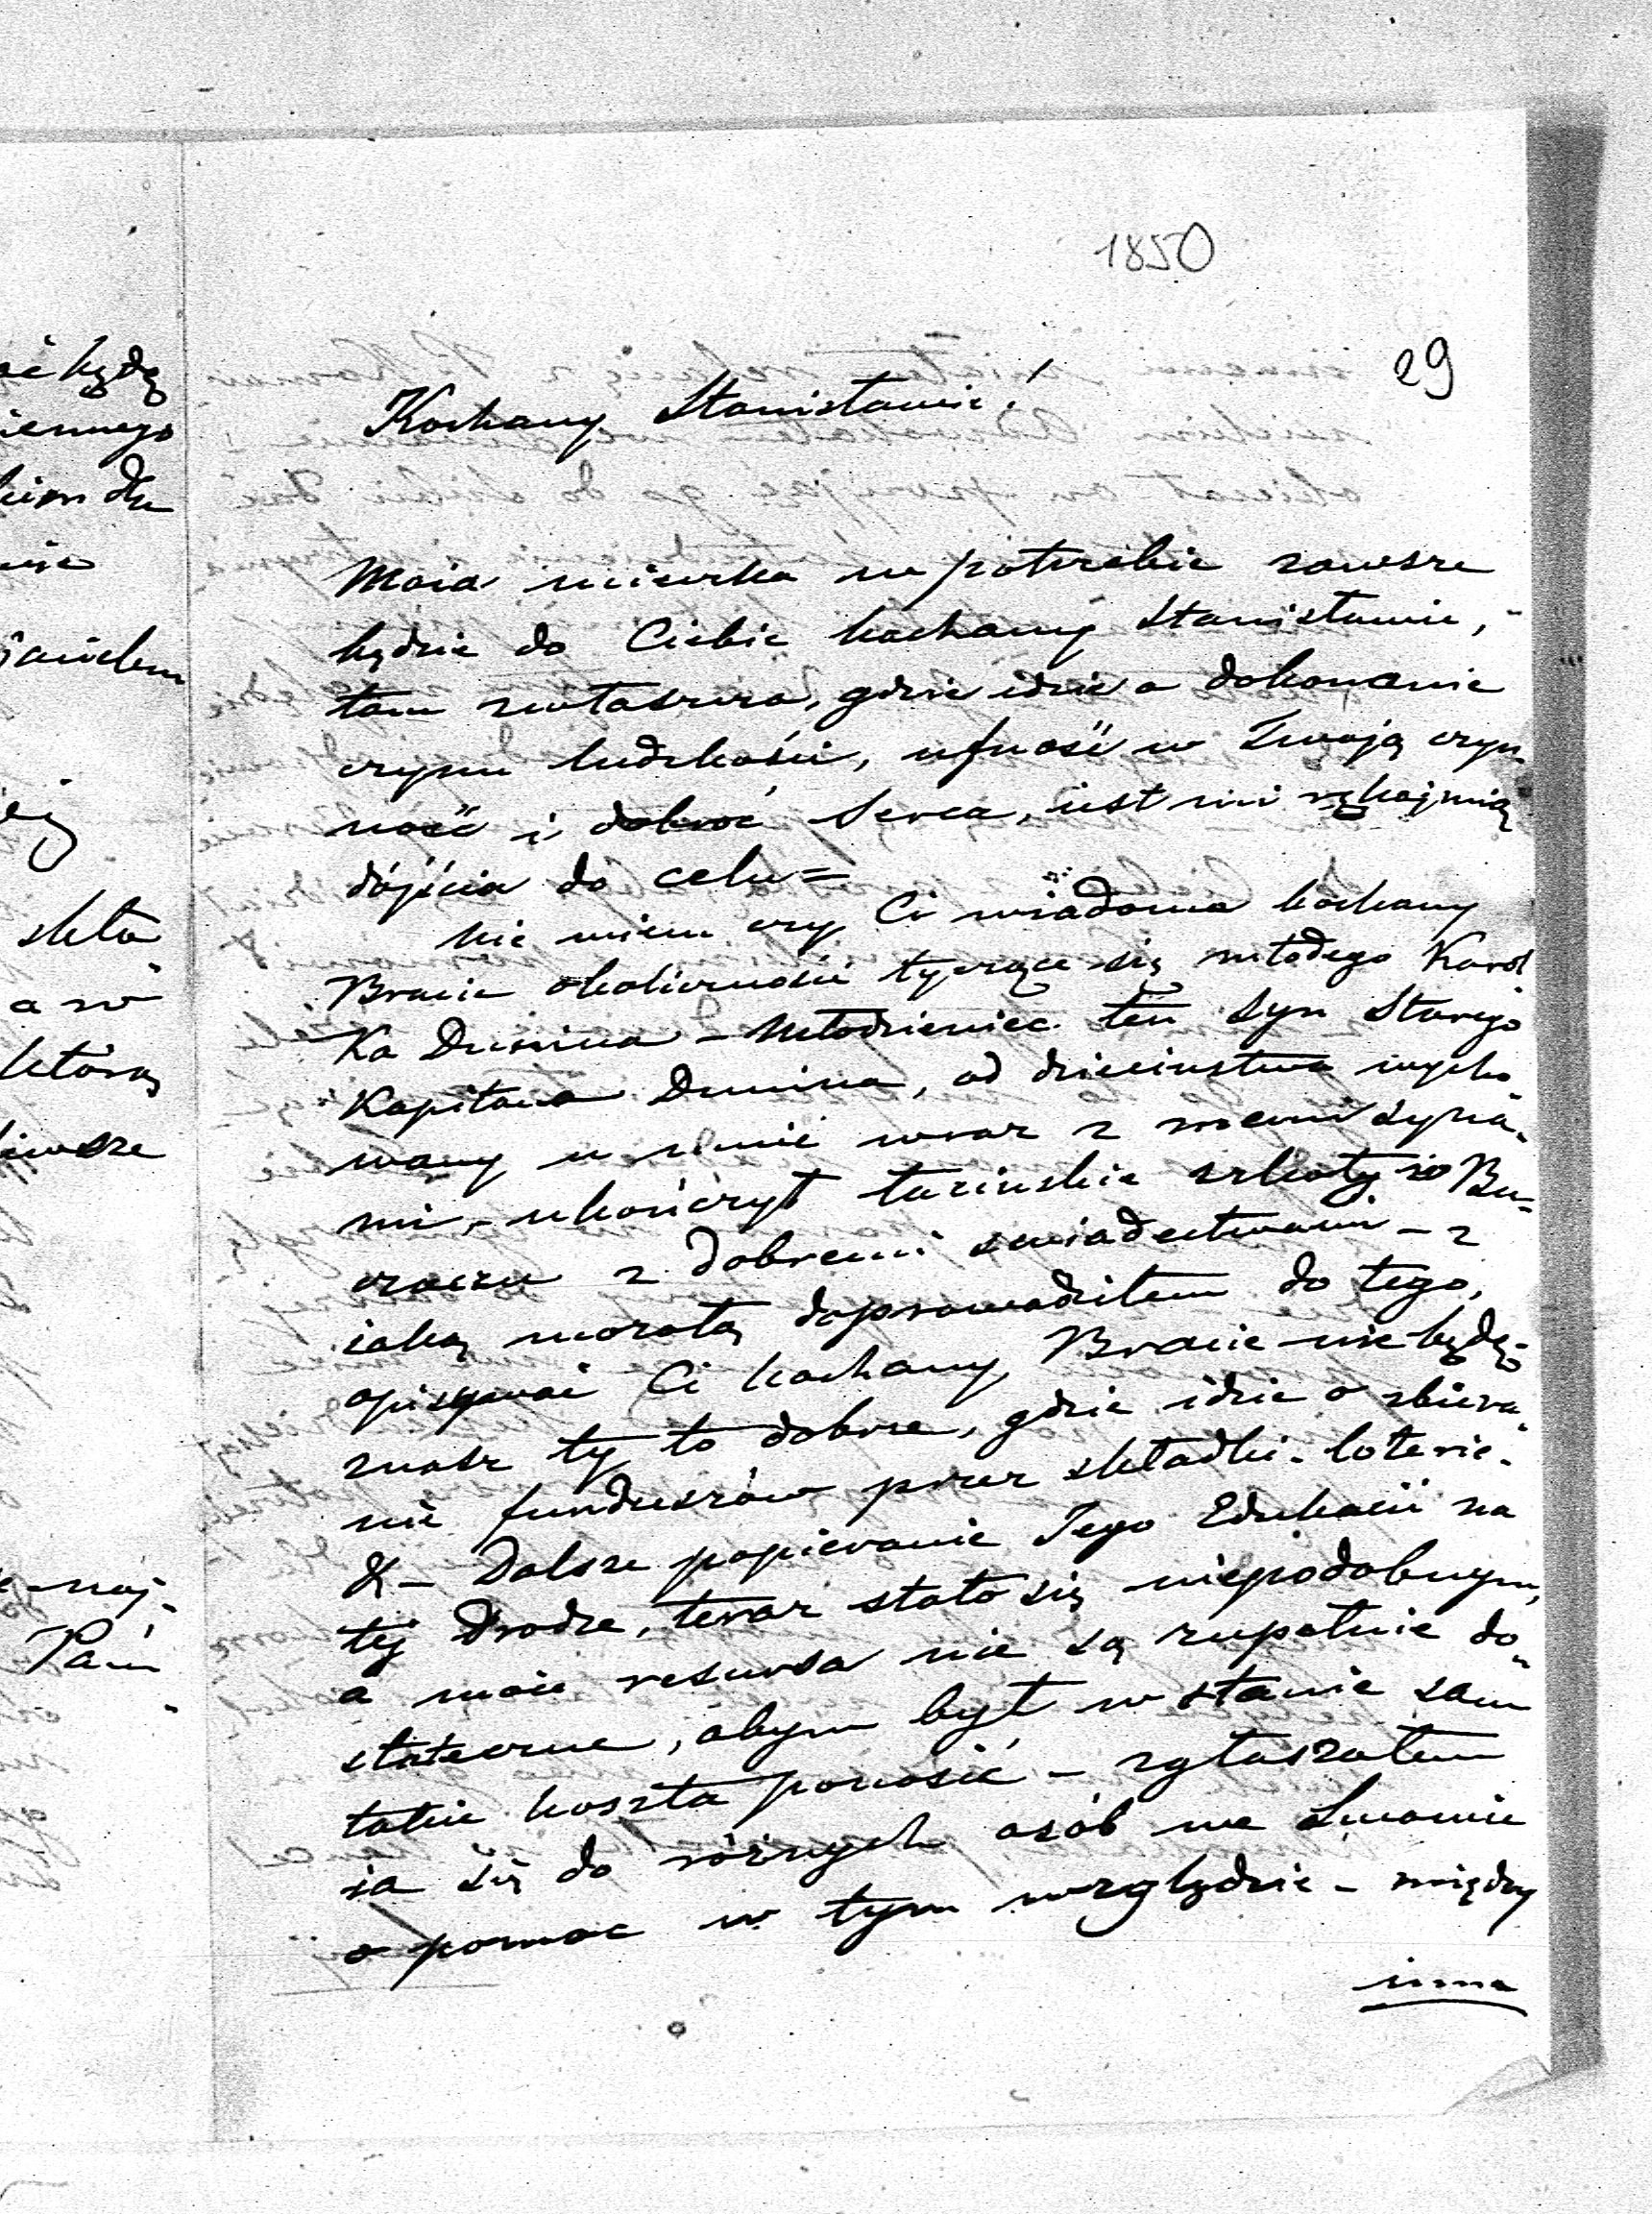 1850
29
Kochany Stanisławie!
Moia ucieczka w potrzebie zawsze
będzie do Ciebie kochany Stanisławie,
tam zwłaszcza, gdzie idzie o dokonanie
czynu ludzkości, ufność w Twoją czyn-
ność i dobroć serca, iest mi rękojmią
dójścia do celu =
Nie wiem czy Ci wiadome kochany
Bracie okoliczności tyczące się młodego Karol
Ka Dunina – Młodzieniec ten syn Starego
Kapitana Dunina, od dzieciństwa wycho-
wany u mnie wraz z memi syna-
mi, – ukończył łacińskie szkoły w Bu-
czaczu z dobremi swiadectwami – z
iaką mozołą doprowadziłem do tego,
opisywać Ci kochany Bracie nie będę,
znasz ty to dobrze, gdzie idzie o zbiera-
nie funduszów przez składki. loterie.
& – Dalsze popieranie Jego Edukacii na
tej drodze, teraz stało się niepodobnym,
a moie resursa nie są zupełnie do-
stateczne, abym był w stanie sam
takie koszta ponosić – zgłaszałem
ia się do różnych osób we Lwowie
o pomoc w tym względzie – między
inne
ać będę
iennego
skła
a w
którą
naj-
Pani